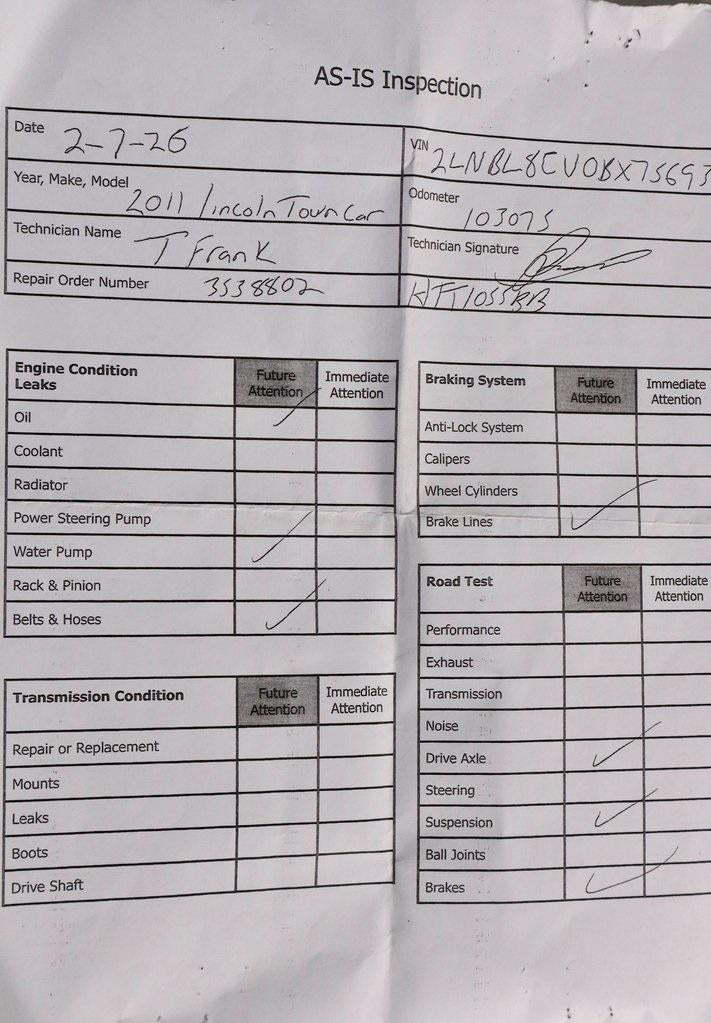 AS-IS Inspection
Date 2-7-26
VIN 2LNBL8CV0BX75693
Year, Make, Model 2011 lincoln Town Car
Odometer 103075
Technician Name T Frank
Technician Signature
Repair Order Number 3538802
Engine Condition
Leaks
Future
Attention
Immediate
Attention
Oil ✓
Coolant
Radiator
Power Steering Pump
Water Pump ✓
Rack & Pinion
Belts & Hoses ✓
Transmission Condition
Future
Attention
Immediate
Attention
Repair or Replacement
Mounts
Leaks
Boots
Drive Shaft
Braking System
Future
Attention
Immediate
Attention
Anti-Lock System
Calipers
Wheel Cylinders
Brake Lines ✓
Road Test
Future
Attention
Immediate
Attention
Performance
Exhaust
Transmission
Noise
Drive Axle ✓
Steering
Suspension ✓
Ball Joints
Brakes ✓